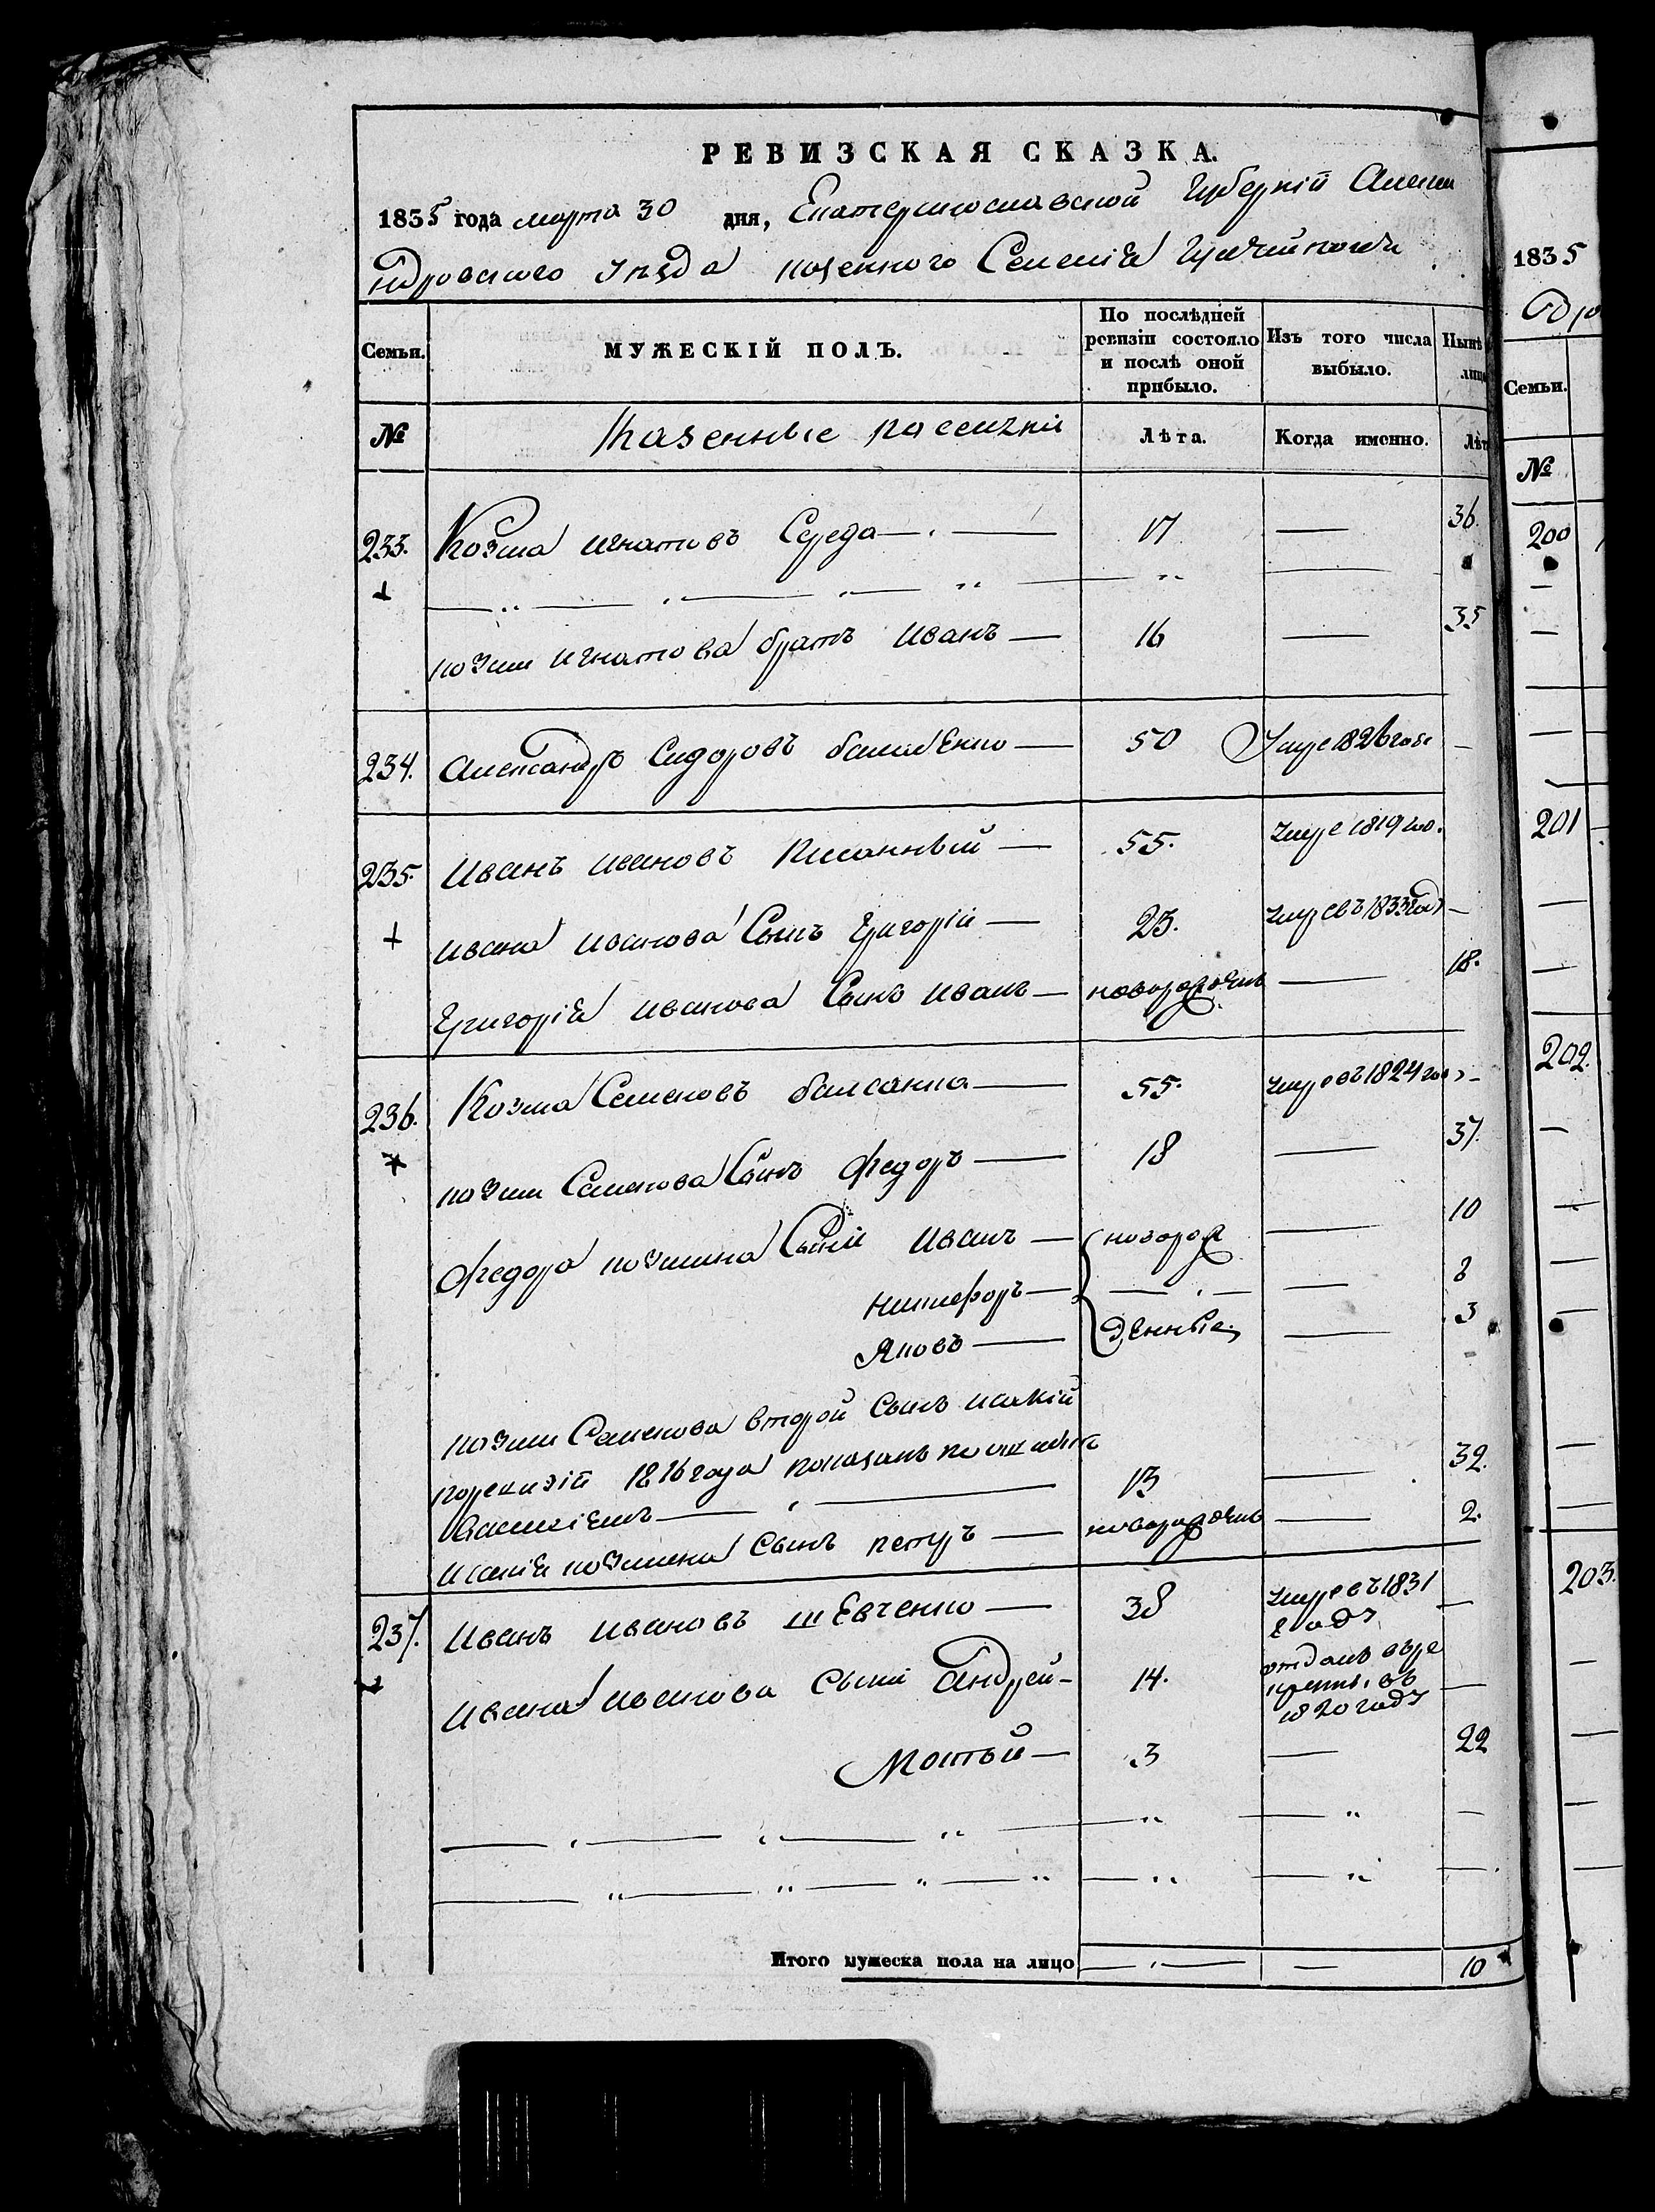 РЕВИЗСКАЯ СКАЗКА.
1835 года марта 30 дня, Екатеринославской Губерніи Алекса
ндровского уѣзда казенного Селенія
Семьи. МУЖЕСКІЙ ПОЛЪ. По послѣдней ревизіи состояло и послѣ оной прибыло. Изъ того числа выбыло. Нынѣ лицо
№ Казенные поселяне Лѣта. Когда именно. Лѣт
233. Козма игнатовъ Середа 17 36.
козми игнатова братъ иванъ 16 35
234. Александръ Сидоровъ 50 умре 1826 годе
235. иванъ ивановъ 55. умре 1819 го.
ивана иванова Сынъ григорій 23. умре въ 1833 году
григорія иванова Сынъ иванъ новорожденъ 18.
236. Козма Семеновъ 55. умре въ 1824 год
козми Семенова Сынъ федоръ 18 37.
федора козмина Сыни иванъ новорож 10
никифоръ 8
Яковъ денные 3
козми Семенова второй Сынъ исакій
поревизіи 1816 года показанъ
Василіемъ 13 32.
исакія козмина Сынъ петръ новорожденъ 2.
237. иванъ ивановъ шЕвченко 38 умре въ 1831
годэ
ивана иванова Сыни Андрей 14. отданъ въре
крути, въ
1820 годэ
Мотвй 3 22
Итого мужеска пола на лицо 10
1835
Семьи.
№
200
201
202.
203.